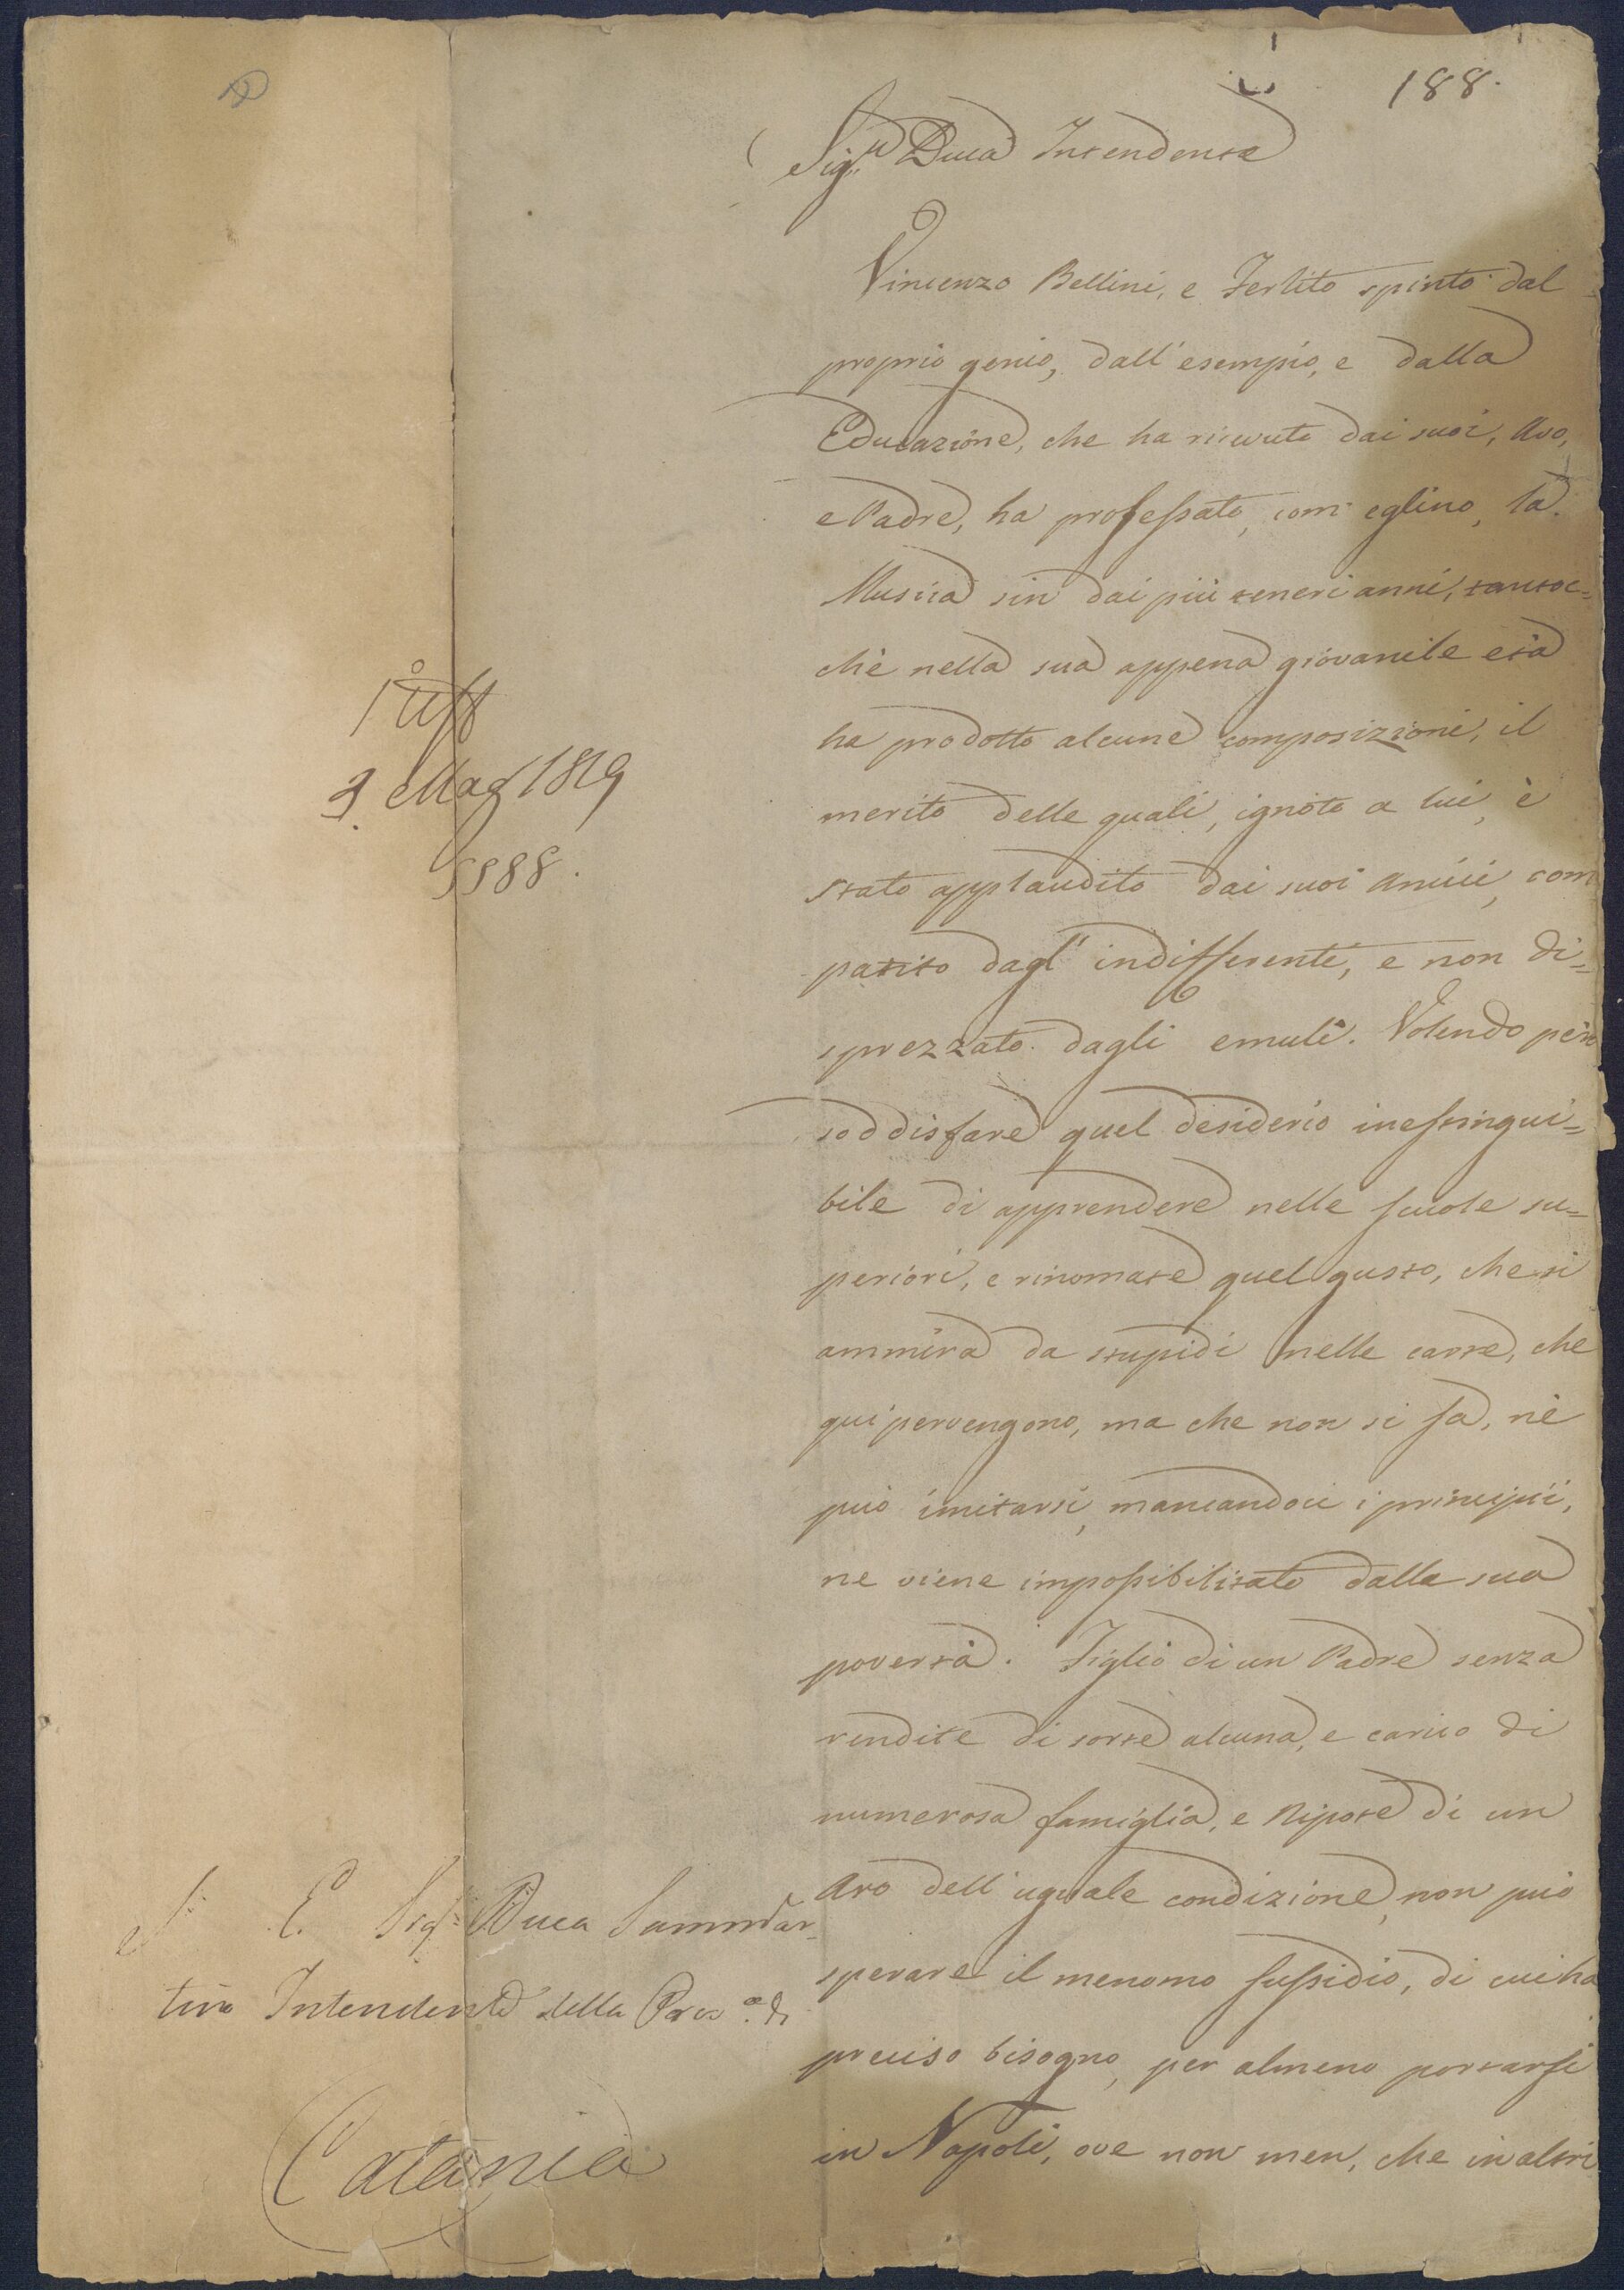 188.
Sig.r Duca Intendente
Vincenzo Bellini, e Ferlito spinto dal
proprio genio, dall'esempio, e dalla
Educazione, che ha ricevuto dai suoi, Avo,
e Padre, ha professato, com'eglino, la
Musica sin dai più teneri anni, tantoc=
chè nella sua appena giovanile età
ha prodotto alcune composizioni, il
merito delle quali, ignoto a lui, è
stato applaudito dai suoi Amici, com
patito dagl'indifferenti, e non di=
sprezzato dagli emuli. Volendo però
soddisfare quel desiderio inestingui=
bile di apprendere nelle scuole su=
periori, e rinomate quel gusto, che si
ammira da stupidi nelle carte, che
qui pervengono, ma che non si sa, nè
può imitarsi, mancandoci i principii,
ne viene impossibilitato dalla sua
povertà. Figlio di un Padre senza
rendite di sorte alcuna, e carico di
numerosa famiglia, e Nipote di un
Avo dell'uguale condizione, non può
sperare il menomo sussidio, di cui ha
preciso bisogno, per almeno portarsi
in Napoli, ove non men, che in altri
1° Uff
9 Mag 1819
5988.
A S. E. Sig.r Duca Sammar-
tino Intendente della Prov.a di
Catania